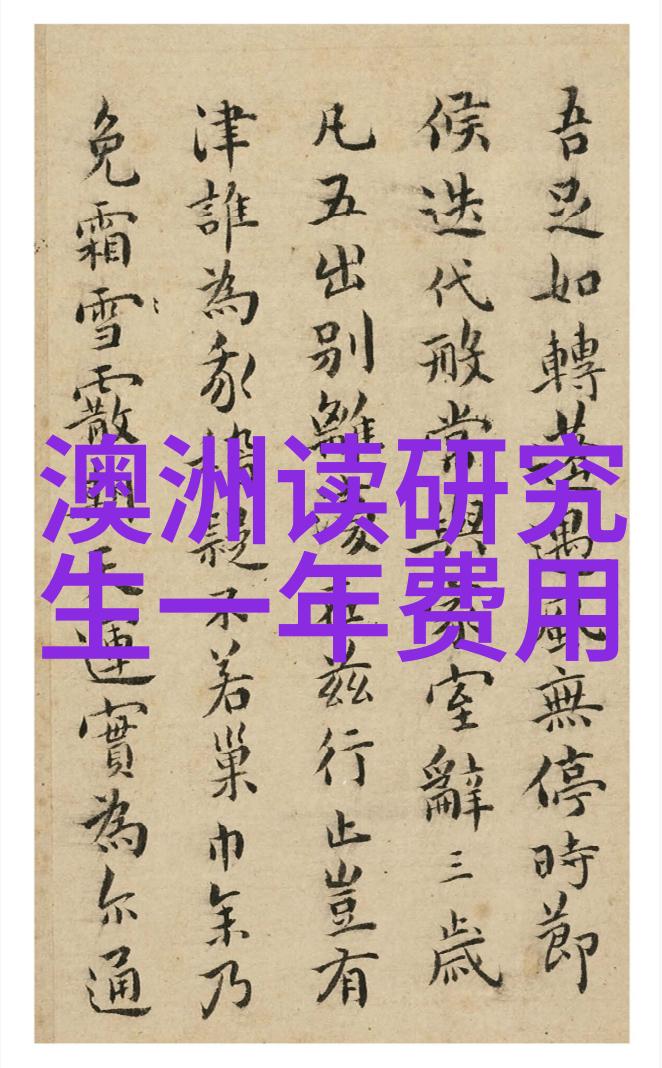 澳洲读研究
生一年费用
吾足如轉遇風無停時節
候迭代常與室辭三歲
凡五出別茲行止豈有
津誰為疑不若巢巾乃
免霜雪霰連實為尔通